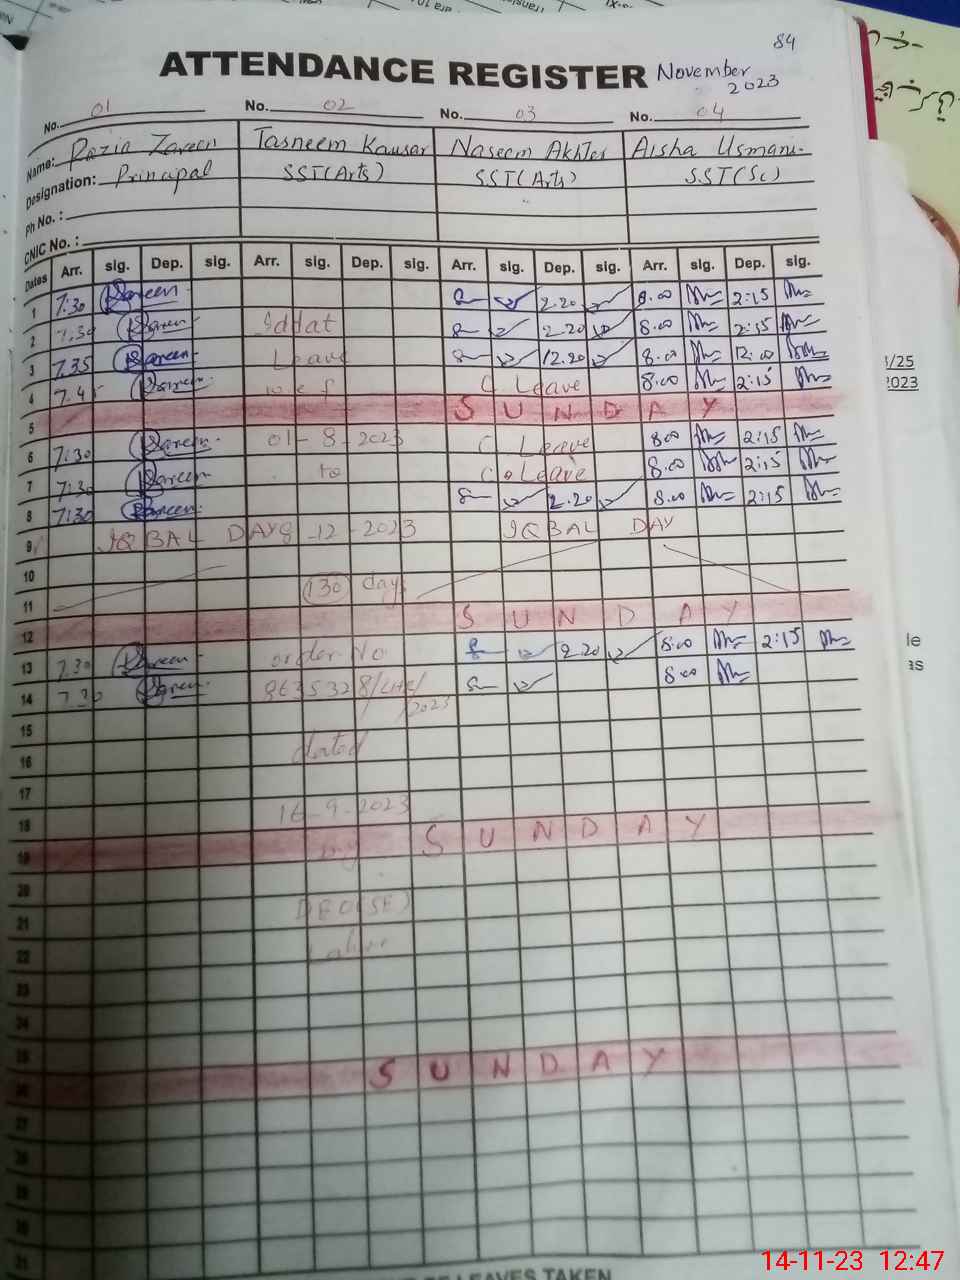 84
ATTENDANCE REGISTER November 2023
No. 01 No. 02 No. 03 No. 04
Name: Razia Zareen Tasneem Kausar Naseem Akhter Aisha Usmani
Designation: Principal SST(Arts) SST(Arts) SST(Sc)
Ph No. :
CNIC No. :
Dates Arr. sig. Dep. sig. Arr. sig. Dep. sig. Arr. sig. Dep. sig. Arr. sig. Dep. sig.
1 7:30 Zareen 2.20 8.00 2:15
2 7:30 Zareen Iddat 2.20 8.00 2:15
3 7.35 Zareen Leave 12.20 8.00 12:00
4 7.45 Zareen w.e.f C Leave 8.00 2:15
5 SUNDAY
6 7:30 Zareen 01-8-2023 C Leave 8.00 2:15
7 7:30 Zareen to C.Leave 8.00 2:15
8 7:30 Zareen 2.20 8.00 2:15
9 IQBAL DAY 8-12-2023 IQBAL DAY
10
11 130 days
12 SUNDAY
13 7.30 Zareen order No 2.20 8.00 2:15
14 7.30 Zareen 8635328/LHR/2023 8.00
15
16 dated
17
18 16-9-2023
19 by SUNDAY
20
21 DEO(SE)
22 Lahore
23
24
25
26 SUNDAY
27
28
29
30
31
LEAVES TAKEN
/25
2023
le
as
14-11-23 12:47